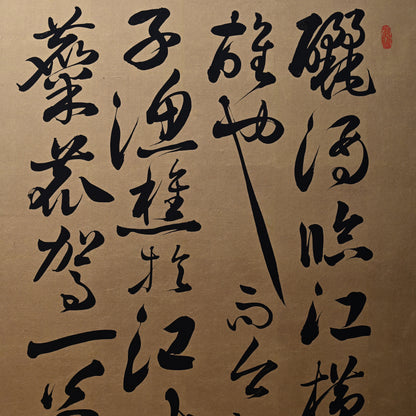 釃酒臨江橫
雄也而今
子漁樵於江
麋鹿駕一葉